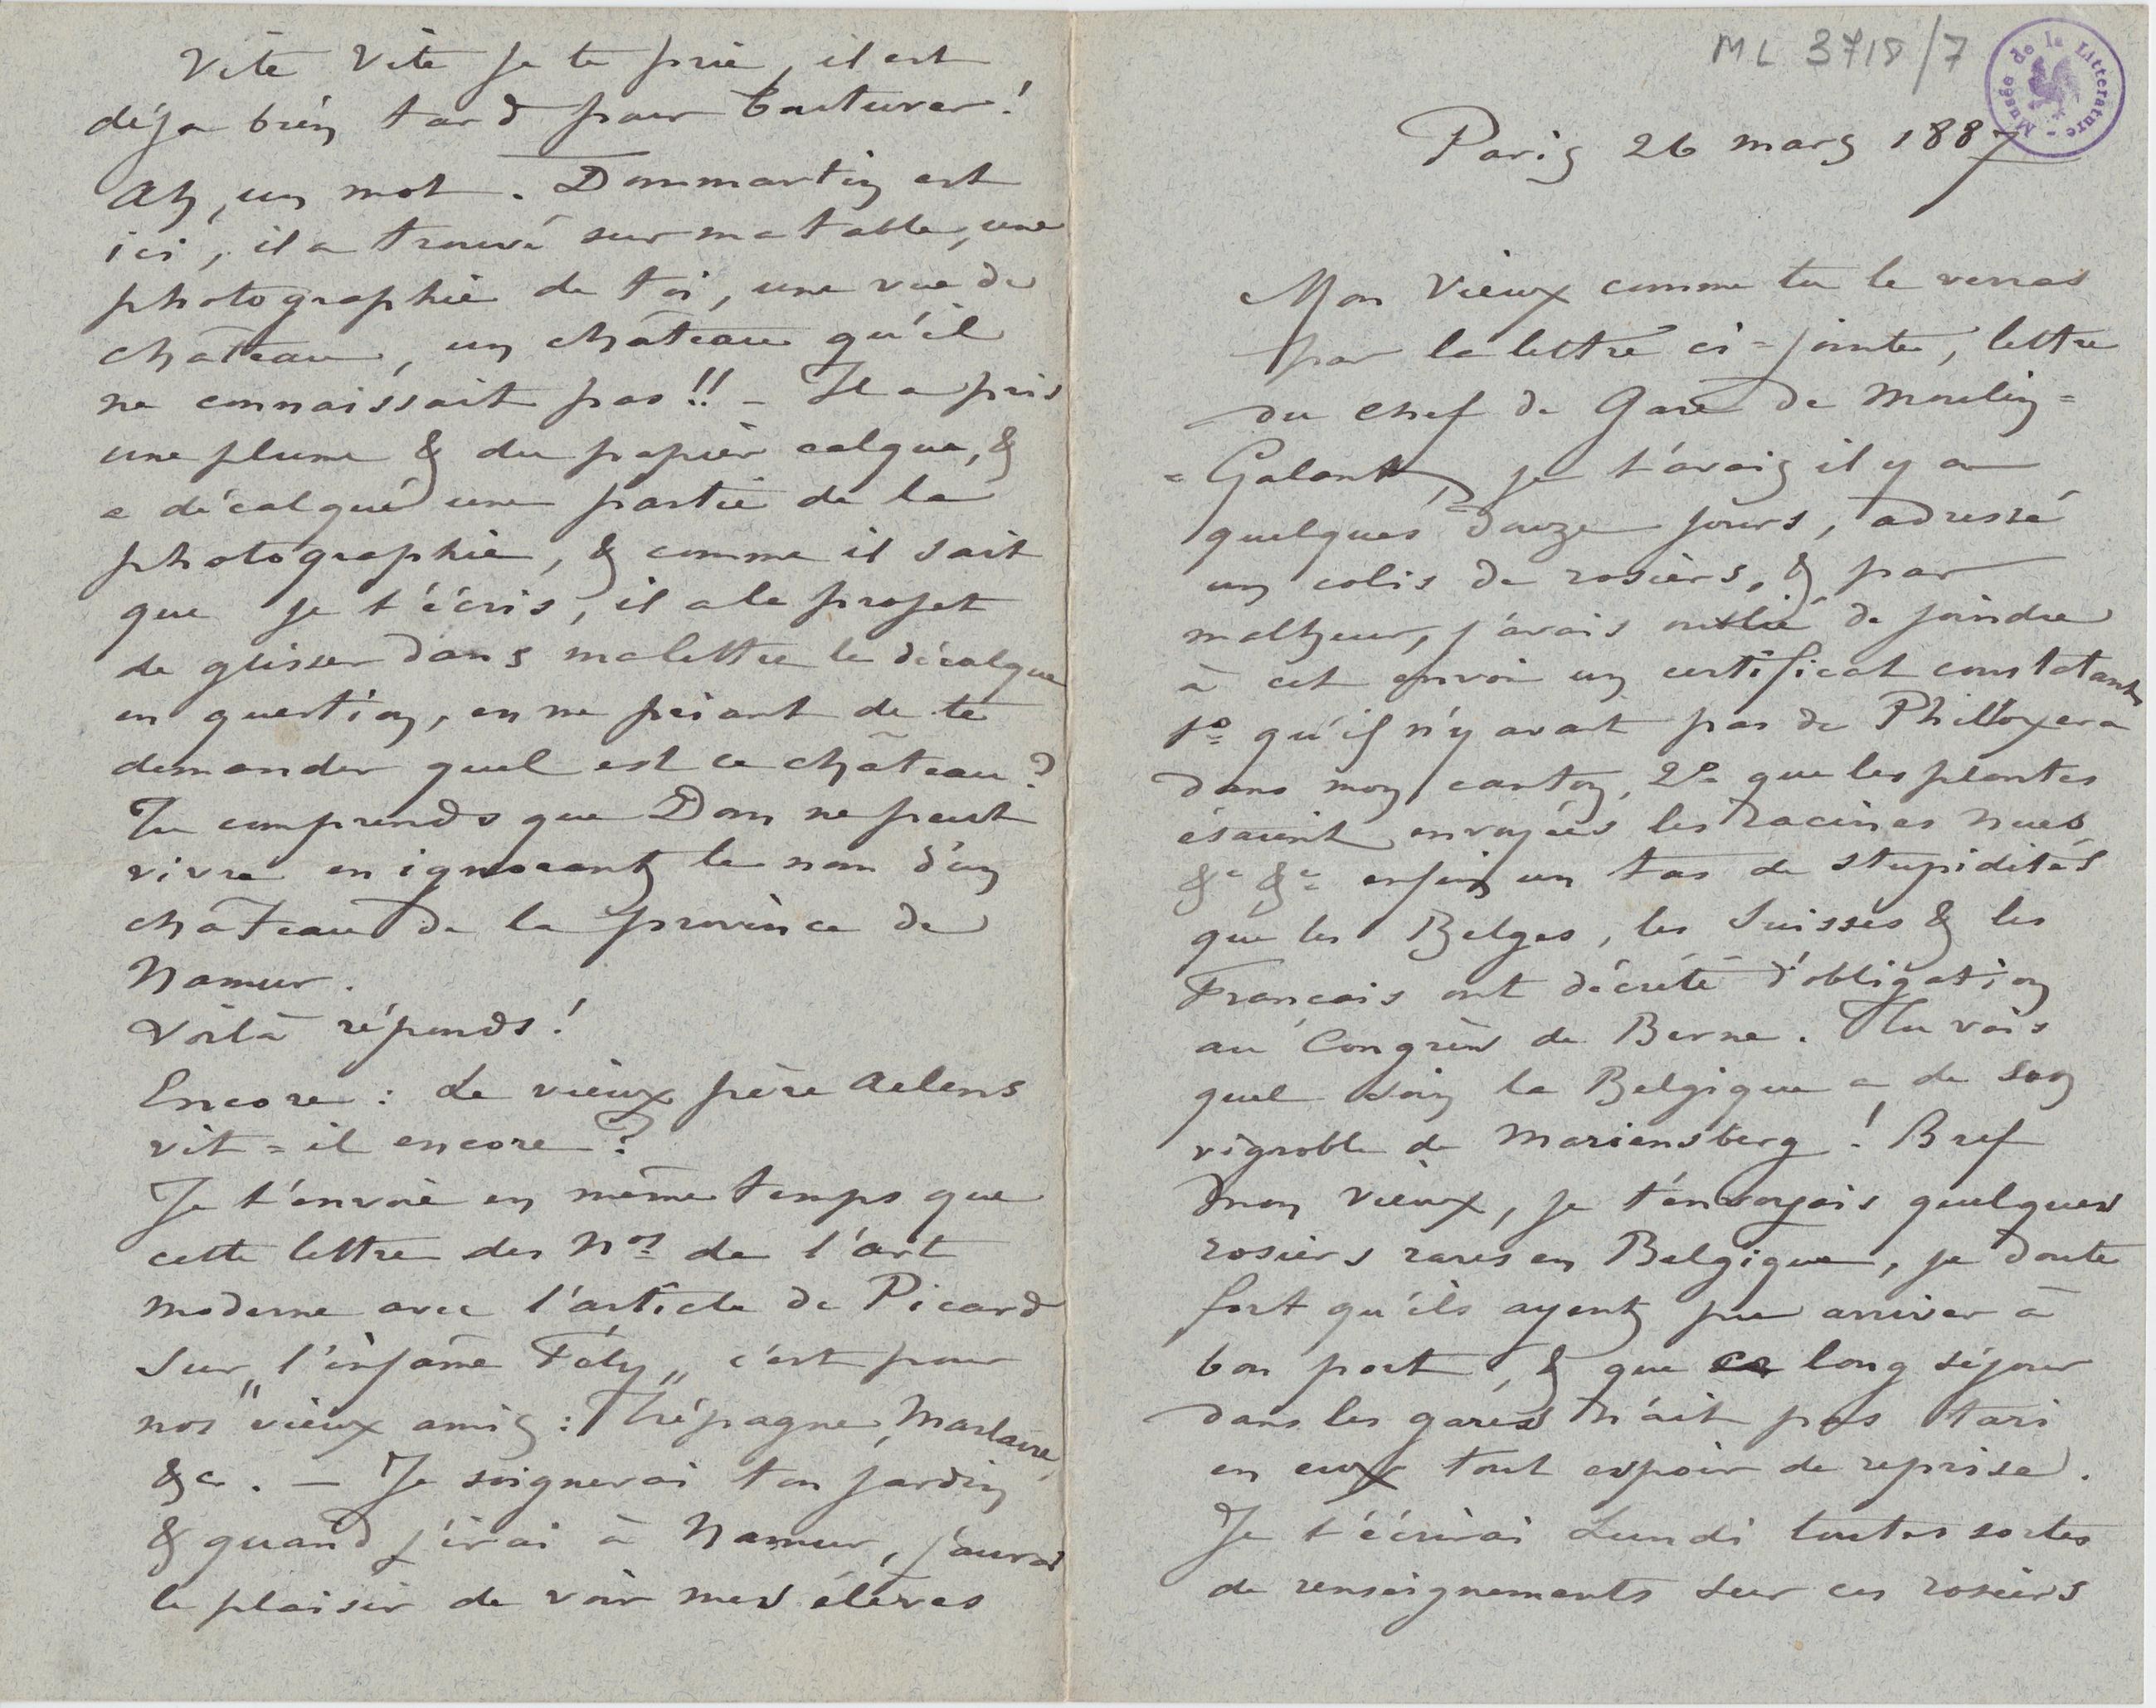 ML 3718/7
Musée de la Littérature
Paris 26 mars 1887
Mon Vieux comme tu le verras
par la lettre ci=jointe, lettre
du chef de Gare de Moulin=
=Galant, je t'avais il y a
quelques douze jours, adressé
un colis de rosiers, & par
malheur, j'avais oublié de joindre
à cet envoi un certificat constatant
1º qu'il n'y avait pas de Philloxera
dans mon canton, 2º que les plantes
étaient envoyées les racines nues
&c &c enfin un tas de stupidités
que les Belges, les Suisses & les
Français ont décrété d'obligation
au Congrès de Berne. Tu vois
quel soin la Belgique a de son
vignoble de Mariensberg ! Bref
mon vieux, je t'envoyais quelques
rosiers rares en Belgique, je doute
fort qu'ils ayent pu arriver à
bon port, & que ce long séjour
dans les gares n'ait pas tari
en eux tout espoir de reprise.
Je t'écrirai Lundi toutes sortes
de renseignements sur ces rosiers
Vite Vite je te prie, il est
déja bien tard pour bouturer !
Ah, un mot. Dommartin est
ici, il a trouvé sur ma table, une
photographie de toi, une vue de
château, un château qu'il
ne connaissait pas !! _ Il a pris
une plume & du papier calque, &
a décalqué une partie de la
photographie, & comme il sait
que je t'écris, il a le projet
de glisser dans ma lettre le décalque
en question, en me priant de te
demander quel est ce château ?
Tu comprends que Dom ne peut
vivre en ignorant le nom d'un
château de la province de
Namur.
Voilà réponds !
Encore : Le vieux père Aelens
vit=il encore ?
Je t'envoie en même temps que
cette lettre des Nos de l'art
moderne avec l'article de Picard
sur "l'infâme Fély" c'est pour
nos vieux amis : Trépagne, Marlaire,
&c. — Je soignerai ton jardin
& quand j'irai à Namur, j'aurai
le plaisir de voir mes élèves